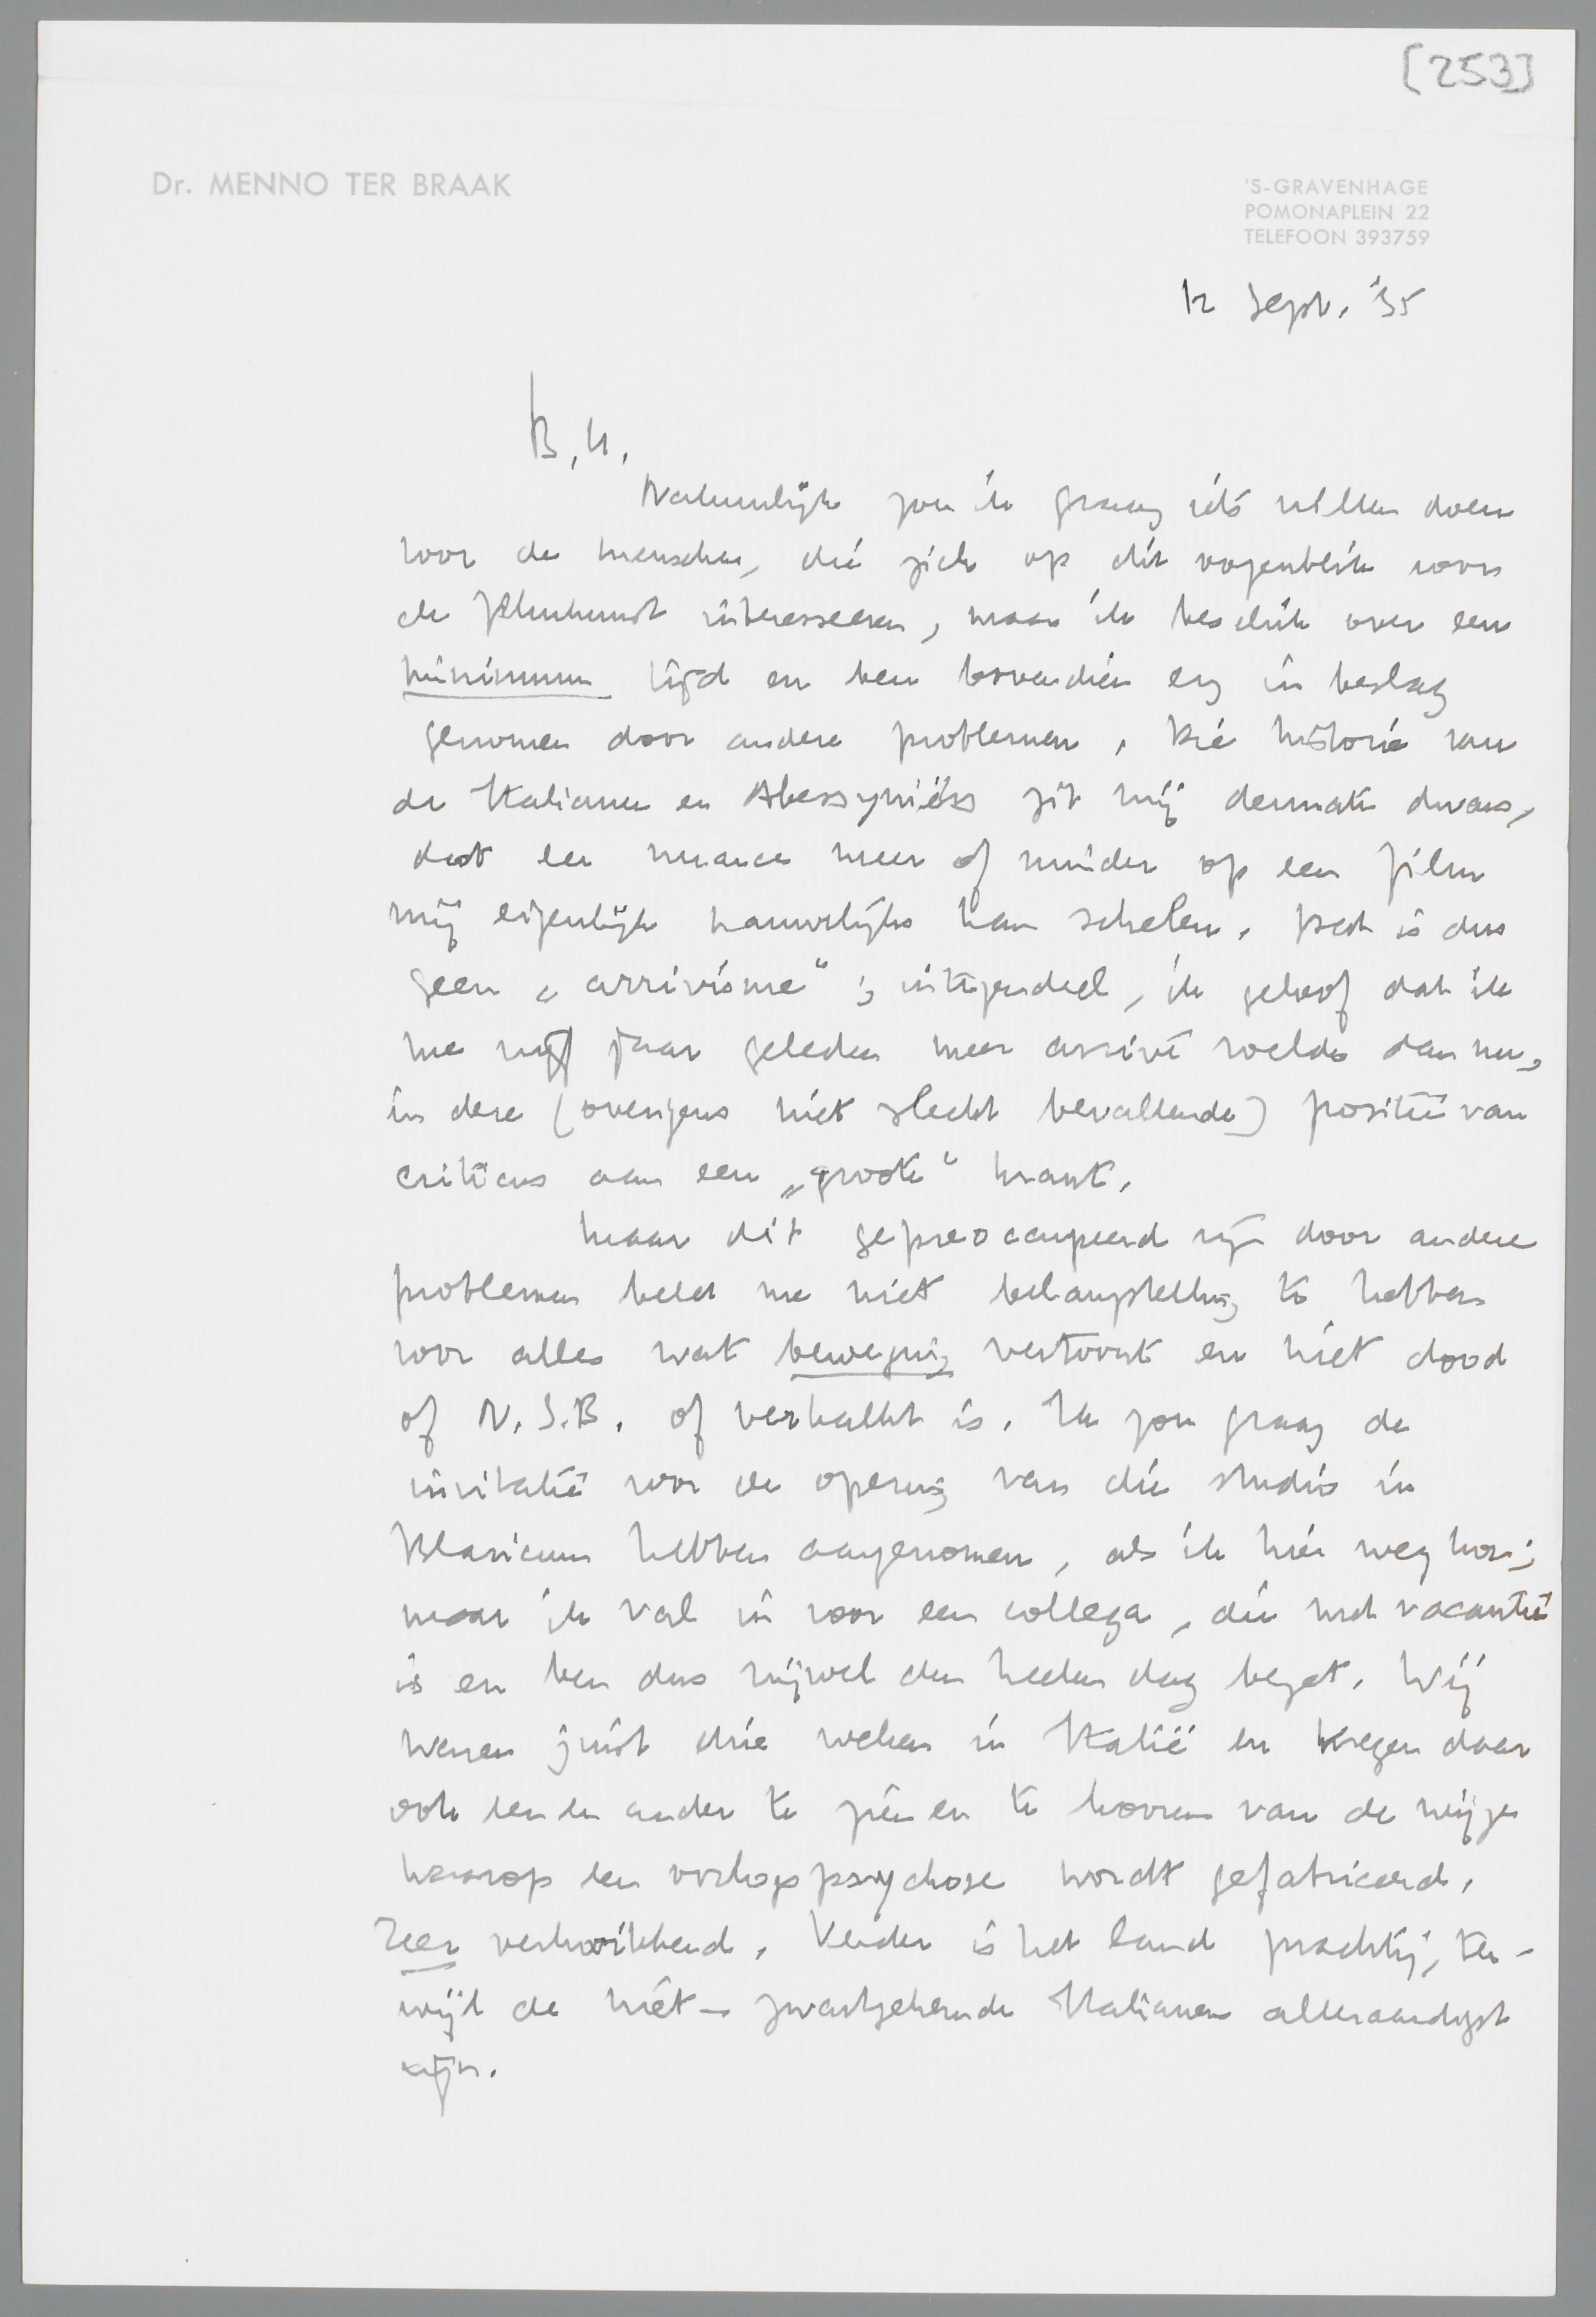 [253]
Dr. MENNO TER BRAAK
'S-GRAVENHAGE
POMONAPLEIN 22
TELEFOON 393759
12 Sept. '35
B. H.,
Natuurlijk zou ik graag iets willen doen
voor de menschen, die zich op dit oogenblik voor
de filmkunst interesseeren, maar ik beschik over een
minimum tijd en ben bovendien erg in beslag
genomen door andere problemen. Die historie van
de Italianen en Abessyniërs zit mij dermate dwars,
dat een nuance meer of minder op een film
mij eigenlijk nauwelijks kan schelen. Het is dus
geen „arrivisme"; integendeel, ik geloof dat ik
me vijf jaar geleden meer arrivé voelde dan nu,
in deze (overigens niet slecht bevallende) positie van
criticus aan een „groote" krant.
Maar dit gepreoccupeerd zijn door andere
problemen belet me niet belangstelling te hebben
voor alles wat beweging vertoont en niet dood
of N.S.B. of verkalkt is. Ik zou graag de
invitatie voor de opening van die studio in
Blaricum hebben aangenomen, als ik hier weg kon;
maar ik val in voor een collega, die met vacantie
is en ben dus vrijwel den heelen dag bezet. Wij
waren juist drie weken in Italië en kregen daar
ook een en ander te zien en te hooren van de wijze
waarop een oorlogspsychose wordt gefabriceerd.
Zeer verkwikkend. Verder is het land prachtig, ter-
wijl de niet-zwartgehemde Italianen alleraardigst
zijn.